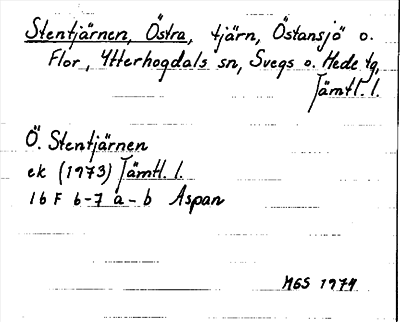 Stentjärnen, Östra, tjärn, Östansjö o.
Flor, Ytterhogdals sn, Svegs o. Hede tg,
Jämtl. l.
Ö. Stentjärnen
ek (1973) Jämtl. l.
16 F 6-7 a-b Aspan
MGS 1974